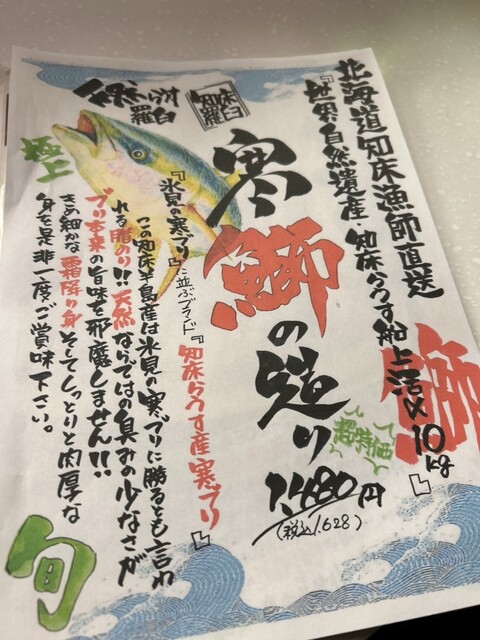 北海道知床漁師直送
『世界自然遺産・知床らうす船上活〆10kg』
寒鰤の造り
1,480円
(税込1,628)
知床
羅臼
極上
『氷見の寒ブリ』に並ぶブランド『知床らうす産寒ブリ』
この知床半島産は氷見の寒ブリに勝るとも言わ
れる脂のり!!天然ならではの臭みの少なさが
ブリ本来の旨味を邪魔しません!!
きめ細かな霜降り身そしてしっとりと肉厚な
身を是非一度ご賞味下さい。
旬